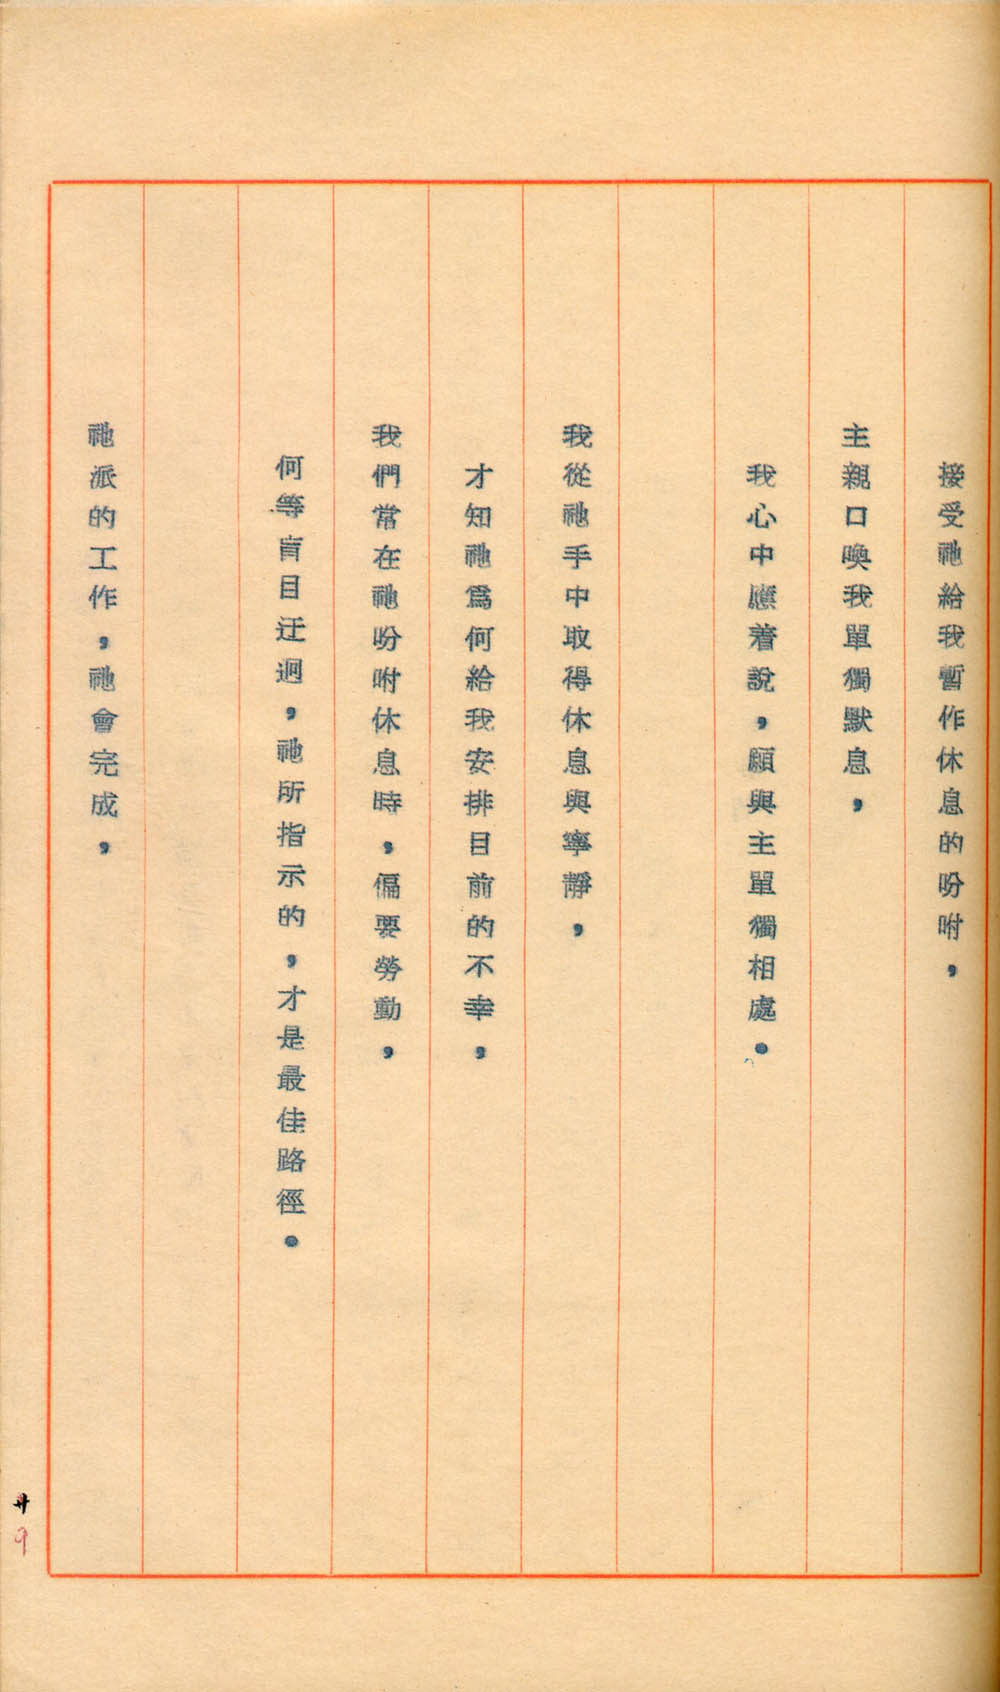 接受祂給我暫作休息的吩咐，
主親口喚我單獨默息，
我心中應着說，願與主單獨相處。
我從祂手中取得休息與寧靜，
才知祂為何給我安排目前的不幸，
我們常在祂吩咐休息時，偏要勞動，
何等盲目迂迴，祂所指示的，才是最佳路徑。
祂派的工作，祂會完成，
廿9